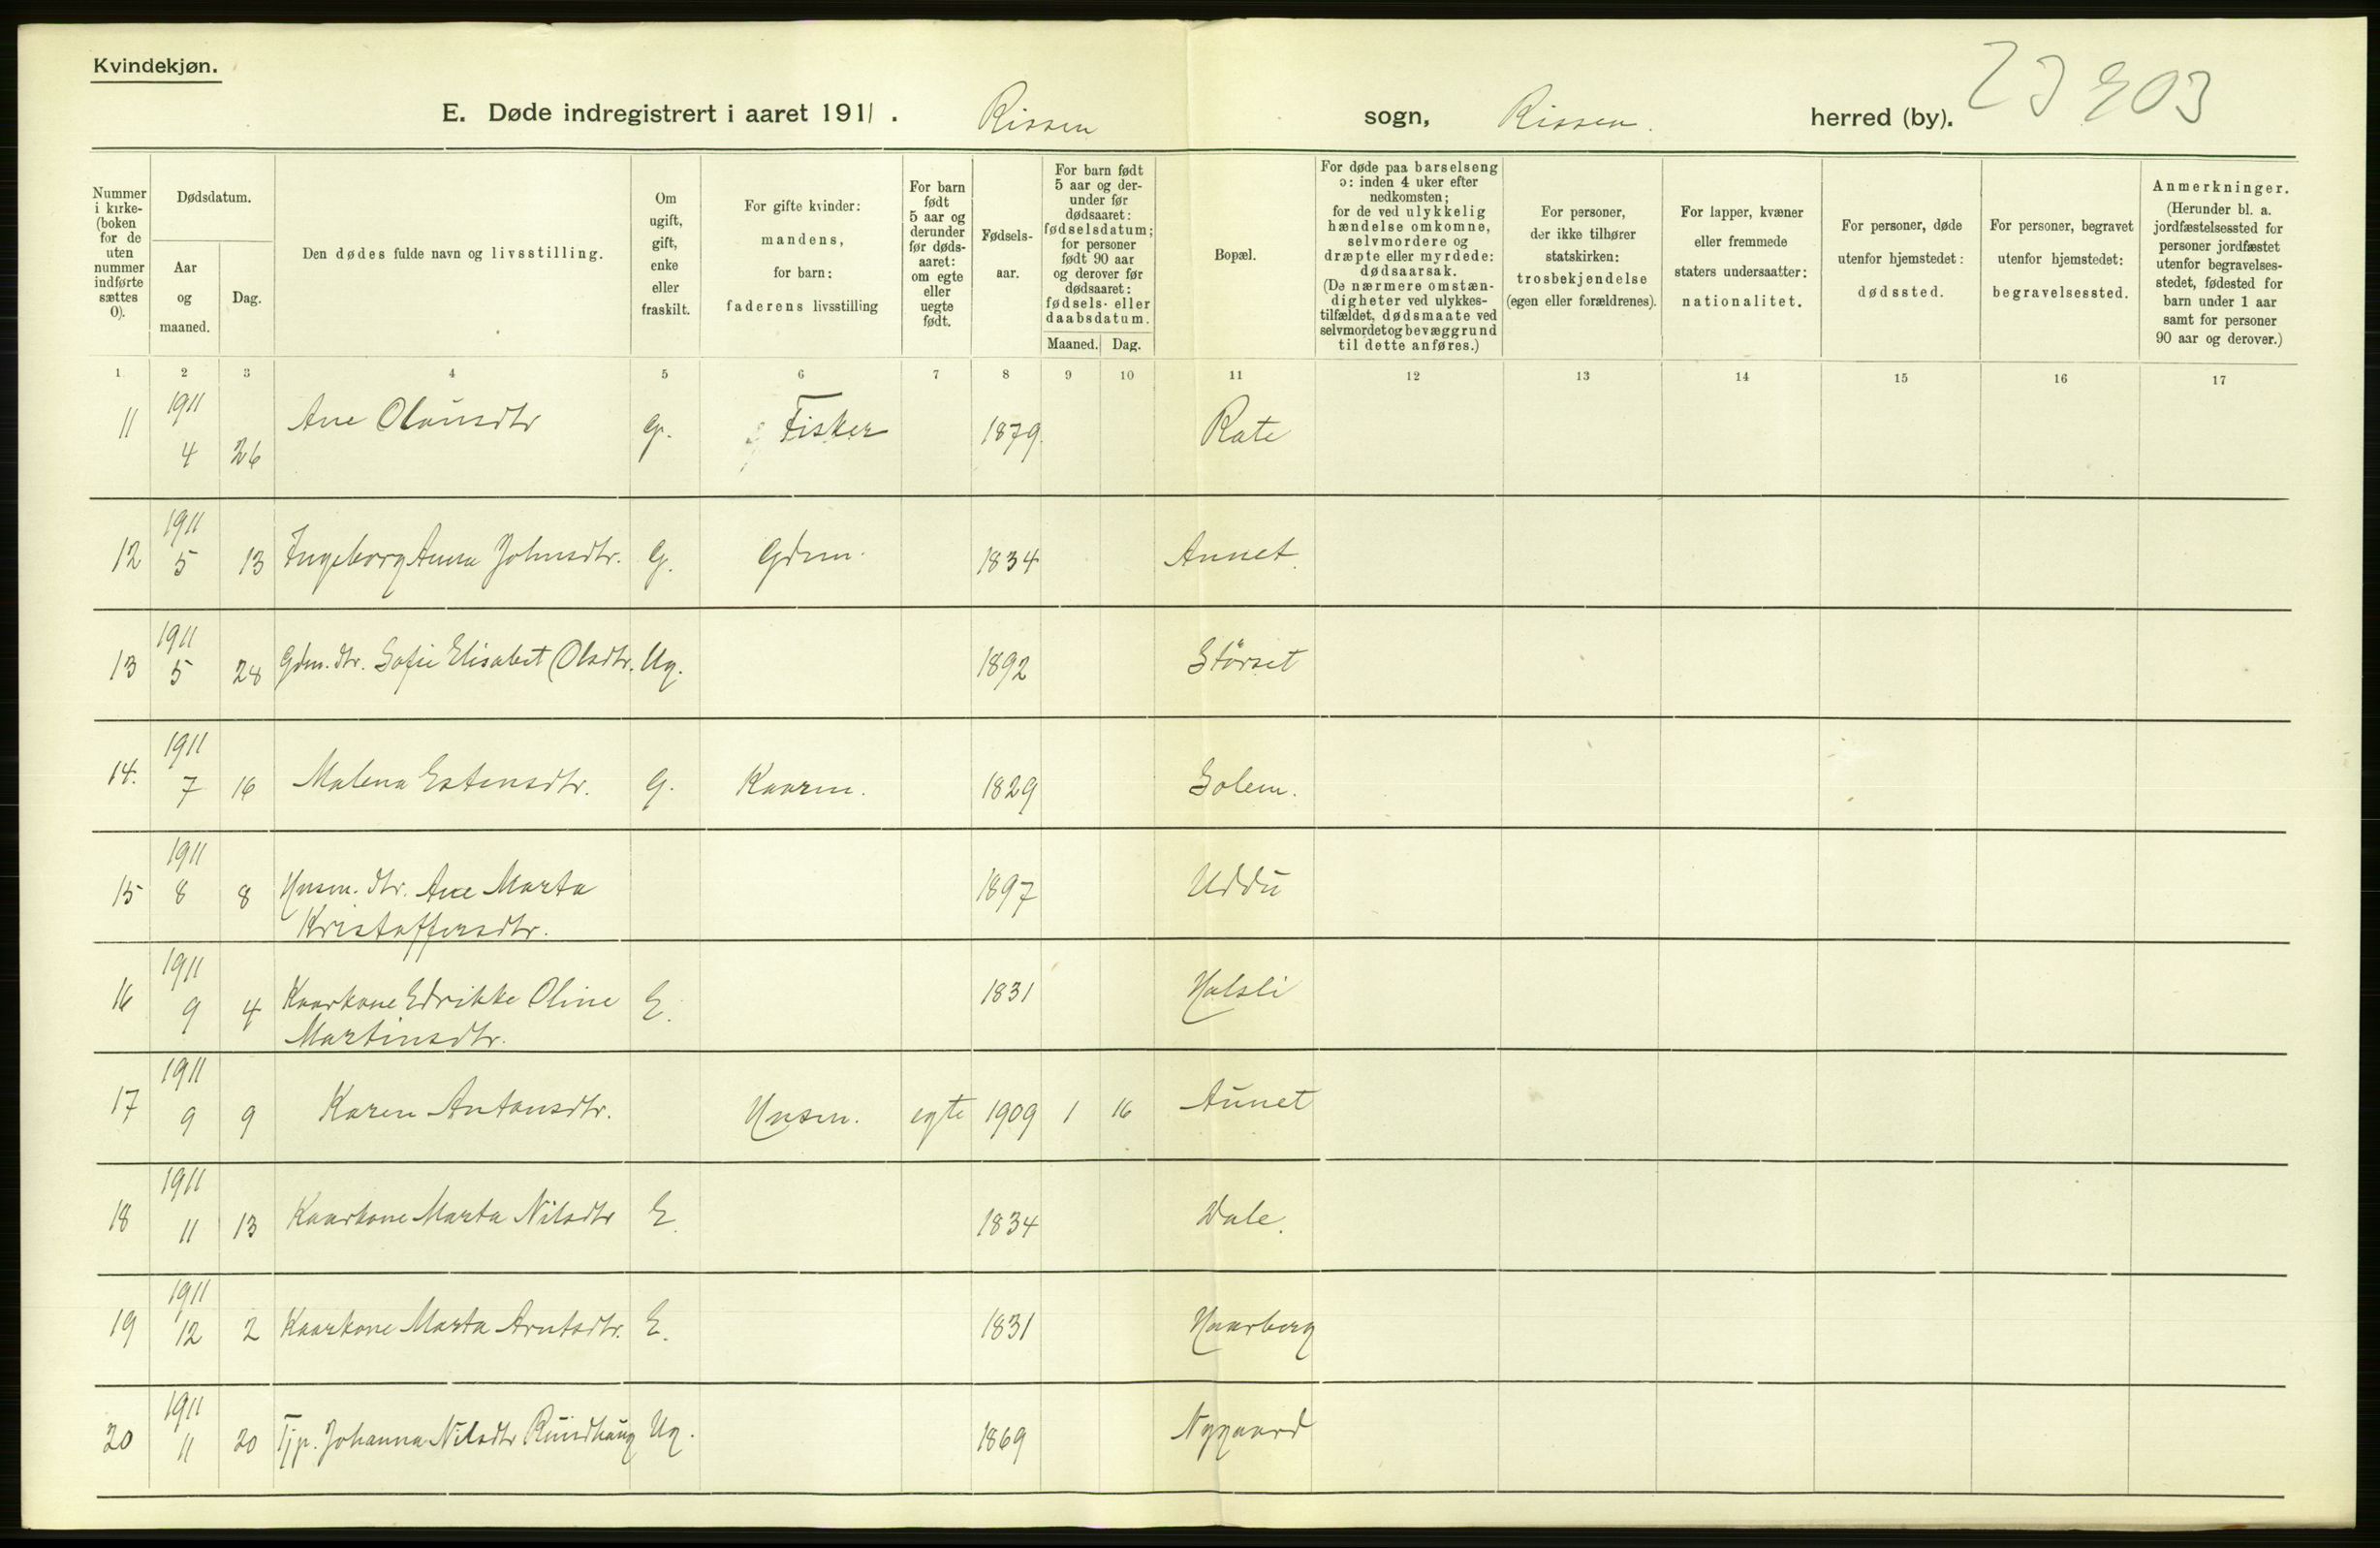 Kvindekjøn.
23 903
E. Døde indregistrert i aaret 1911. Rissen sogn, Rissen. herred (by).
Nummer i kirke-(boken for de uten nummer indførte sættes 0).
Dødsdatum.
Aar og maaned.
Dag.
Den dødes fulde navn og livsstilling.
Om ugift, gift, enke eller fraskilt.
For gifte kvinder: mandens, for barn: faderens livsstilling
For barn født 5 aar og derunder før døds-aaret: om egte eller uegte født.
Fødsels-aar.
For barn født 5 aar og der-under før dødsaaret: fødselsdatum; for personer født 90 aar og derover før dødsaaret: fødsels- eller daabsdatum.
Maaned. Dag.
Bopæl.
For døde paa barselseng ɔ: inden 4 uker efter nedkomsten; for de ved ulykkelig hændelse omkomne, selvmordere og dræpte eller myrdede: dødsaarsak. (De nærmere omstæn-digheter ved ulykkes-tilfældet, dødsmaate ved selvmord og bevæggrund til dette anføres.)
For personer, der ikke tilhører statskirken: trosbekjendelse (egen eller forældrenes).
For lapper, kvæner eller fremmede staters undersaatter: nationalitet.
For personer, døde utenfor hjemstedet: dødssted.
For personer, begravet utenfor hjemstedet: begravelsessted.
Anmerkninger. (Herunder bl. a. jordfæstelsessted for personer jordfæstet utenfor begravelses-stedet, fødested for barn under 1 aar samt for personer 90 aar og derover.)
1 2 3 4 5 6 7 8 9 10 11 12 13 14 15 16 17
11 1911 4 26 Ane Olausdtr G. Fisker 1879. Rate
12 1911 5 13 Ingeborg Anna Johnsdtr. G. Gdm. 1834 Aunet.
13 1911 5 28 Gdm. dtr. Sofie Elisabet Olsdtr. Ug. 1892 Størset
14. 1911 7 16 Malena Estensdtr. G. Kaarm. 1829 Solem.
15 1911 8 8 Husm. dtr. Ane Marta 1897 Uddu
Kristoffersdtr.
16 1911 9 4 Kaarkone Edrikke Oline E. 1831 Halsli
Martinsdtr.
17 1911 9 9 Karen Antonsdtr. Husm. egte 1909 1 16 Aunet
18 1911 11 13 Kaarkone Marta Nilsdtr E. 1834 Dale.
19 1911 12 2 Kaarkone Marta Arntsdtr. E. 1831 Haarberg
20 1911 11 20 Tjp. Johanna Nilsdtr Rundhaug Ug. 1869 Nygaard